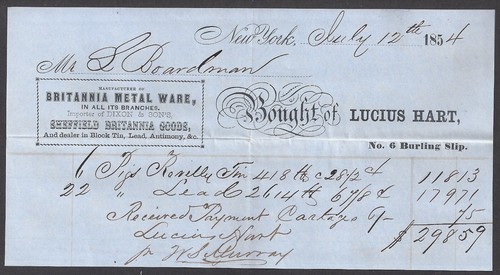 New York, July 12th 1854
Mr L Boardman
MANUFACTURER OF
BRITANNIA METAL WARE,
IN ALL ITS BRANCHES.
Importer of DIXON & SON'S,
SHEFFIELD BRITANNIA GOODS,
And dealer in Block Tin, Lead, Antimony, &c.
Bought of LUCIUS HART,
No. 6 Burling Slip.
6 Pigs Tin 418 lb c 28 1/2 ¢ 11813
22 " Lead 2614 lb 6 7/8 ¢ 17971
Received Payment Cartage 75
Lucius Hart $ 29859
pr W S Murray